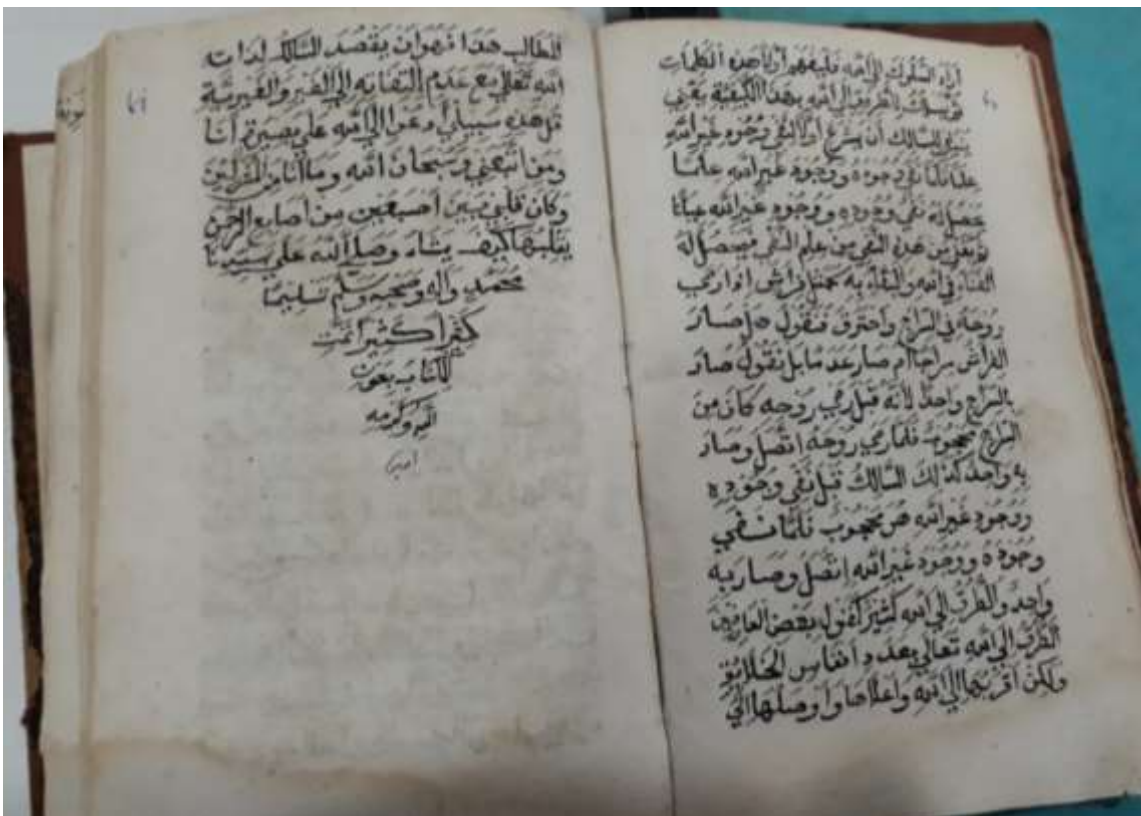 أراد السلوك إلى الله فليفهم أولا هذه الكلمات
الطريق إلى الله بهذا الكيفية يعني
ينبغي للسالك أن يشرع أولا لنفي وجود غير الله
علما فلما نفي وجوده ووجود غير الله علما
حصل له نفي وجوده ووجود غير الله
من هذه النفي من علم النفي فيحصل له
الفناء في الله والبقاء به كمثل فراش اذا رمي
روحه في السراج واحترق فنقول هل صار
الفراش سراجا أم صار عدما بل نقول صار
بالسراج واحدا لأنه قبل رمي روحه كان من
السراج محجوب فلما رمي روحه اتصل وصار
به واحد كذلك السالك قبل نفي وجوده
ووجود غير الله محجوب فلما نفي
وجوده ووجود غير الله اتصل وصار به
واحد والطرق إلى الله كثير كقول بعض العارفين
الطرق إلى الله تعالي بعدد انفاس الخلائق
ولكن اقربها إلى الله وأعلاها وأوصلها إلي
المطالب هذا فهو ان يقصد السالك لذات
الله تعالي مع عدم التفاته إلي الغير والغيرية
قل هذه سبيلي أدعوا إلي الله علي بصيرة أنا
ومن اتبعني وسبحان الله وما أنا من المشركين
وكان قلبي بين أصبعين من أصابع الرحمن
يقلبها كيف يشاء وصلى الله علي سيدنا
محمد وآله وصحبه وسلم تسليما
كثيرا كثيرا تمت
الكتاب بعون
الله وكرمه
امين